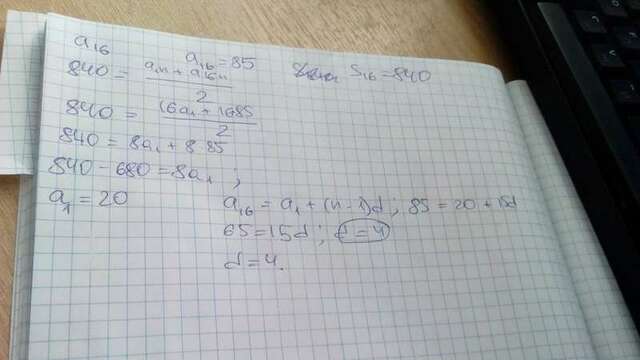 a₁₆ a₁₆=85 S₁₆=840
840 = (a₁n + a₁₆n)/2
840 = (16a₁ + 16·85)/2
840 = 8a₁ + 8·85
840 - 680 = 8a₁ ;
a₁ = 20
a₁₆ = a₁ + (n-1)d ; 85 = 20 + 15d
65 = 15d ; d = 4
d = 4.